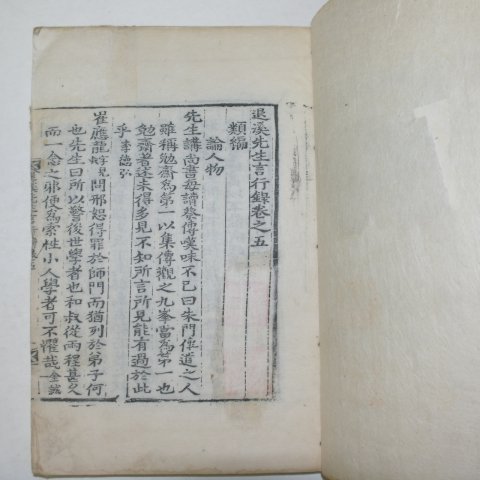 退溪先生言行錄卷之五
類編
論人物
先生講尚書每讀蔡傳嘆味不已曰朱門傳道之人
雖稱勉齋爲第一以集傳觀之九峯當爲第一也
勉齋者述未得多見不知所言所見能有過於此
乎李德弘
崔應龍見問邢恕得罪於師門而猶列於弟子何
也先生曰所以警後世學者也和叔從兩程甚久
而一念之邪便爲索性小人學者可不懼哉全然